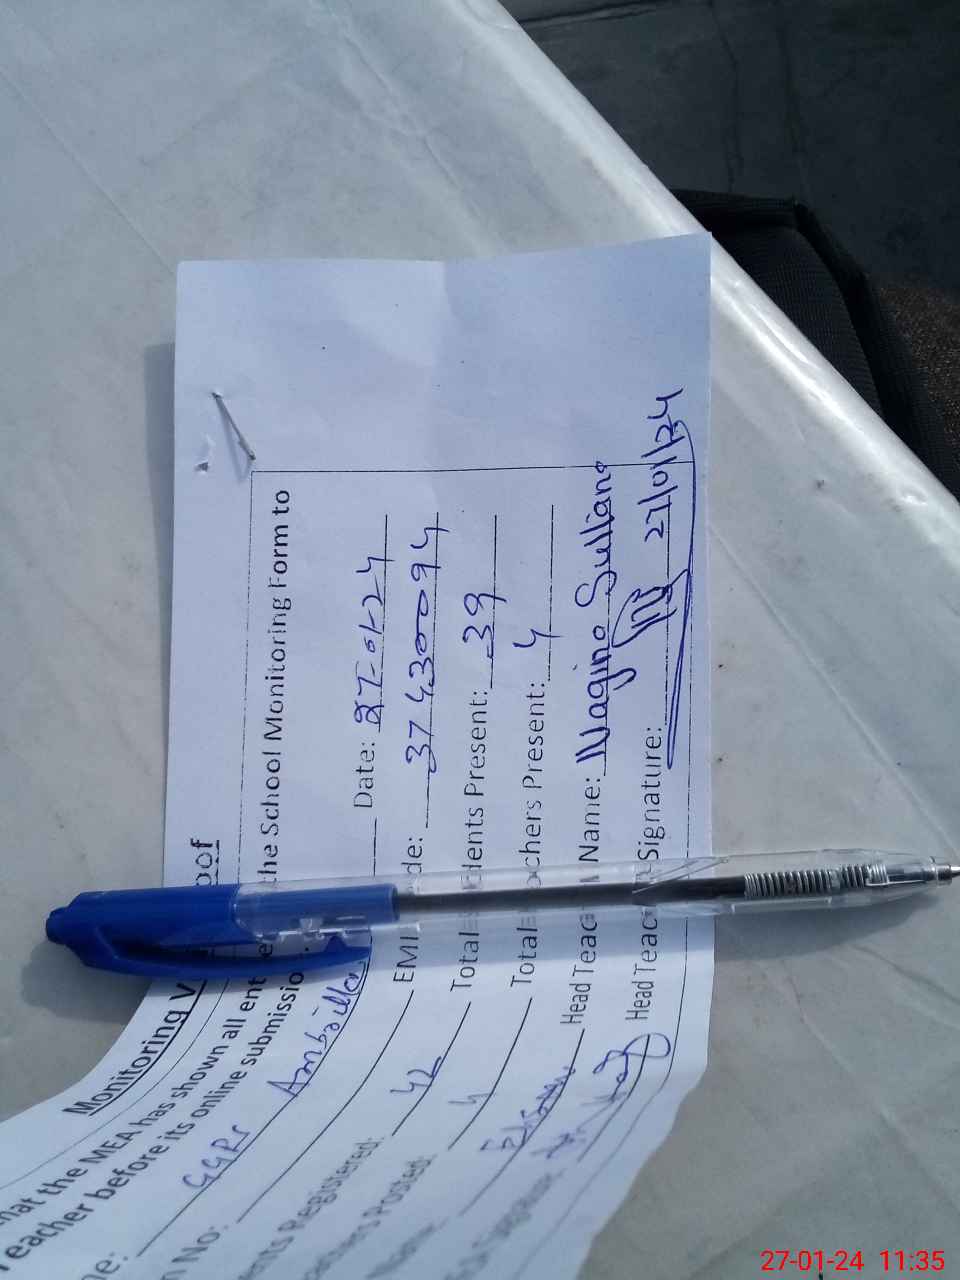 Monitoring V oof
hat the MEA has shown all ent the School Monitoring Form to
Teacher before its online submissio
GGPS Ambailla Date: 27-01-24
n No: EMI de: 37430094
ents Registered: 42 Total dents Present: 39
achers Posted: 4 Total chers Present: 4
Head Teac Name: Nagina Sultana
Head Teac Signature: 27/01/24
27-01-24 11:35